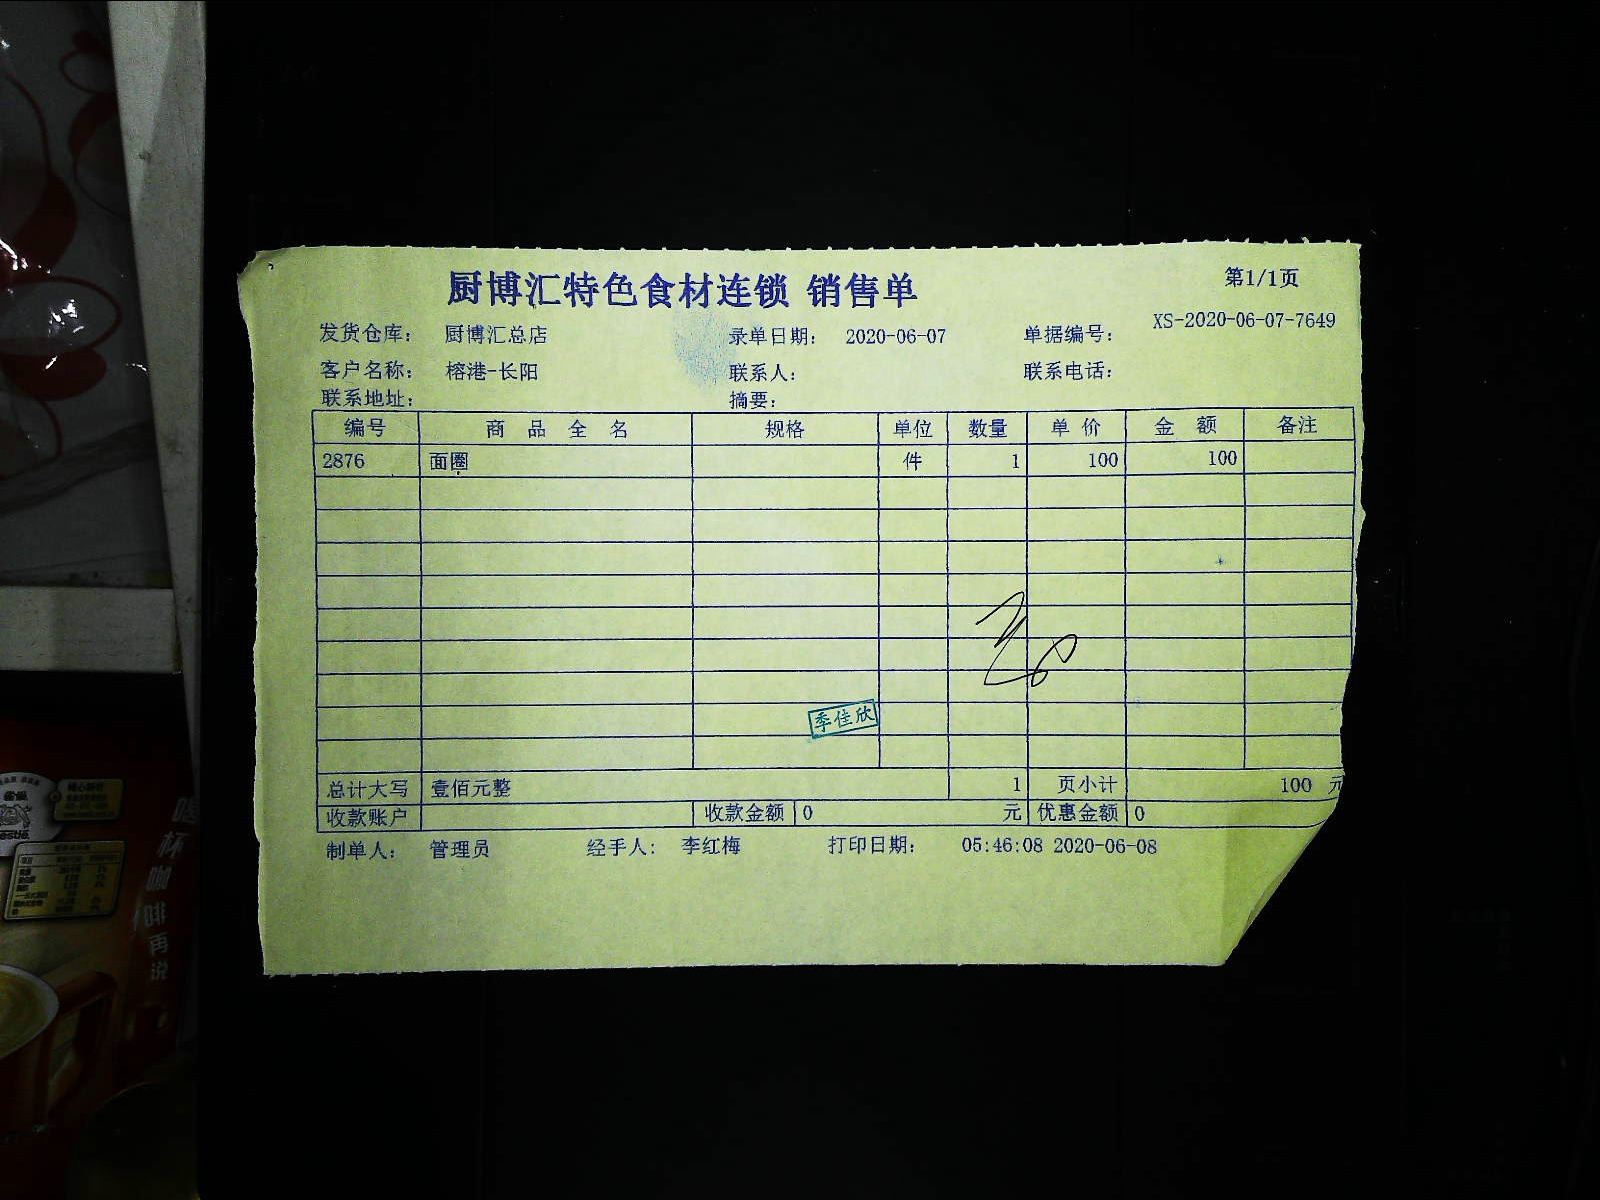 厨博汇特色食材连锁 销售单
第1/1页
发货仓库: 厨博汇总店 录单日期: 2020-06-07 单据编号: XS-2020-06-07-7649
客户名称: 榕港-长阳 联系人: 联系电话:
联系地址: 摘要:
编号 商品全名 规格 单位 数量 单价 金额 备注
2876 面圈 件 1 100 100
季佳欣
总计大写 壹佰元整 1 页小计 100 元
收款账户 收款金额 0 元 优惠金额 0
制单人: 管理员 经手人: 李红梅 打印日期: 05:46:08 2020-06-08
喝杯咖啡再说